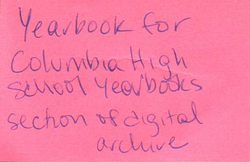 Yearbook for
Columbia High
School Yearbooks
section of digital
archive